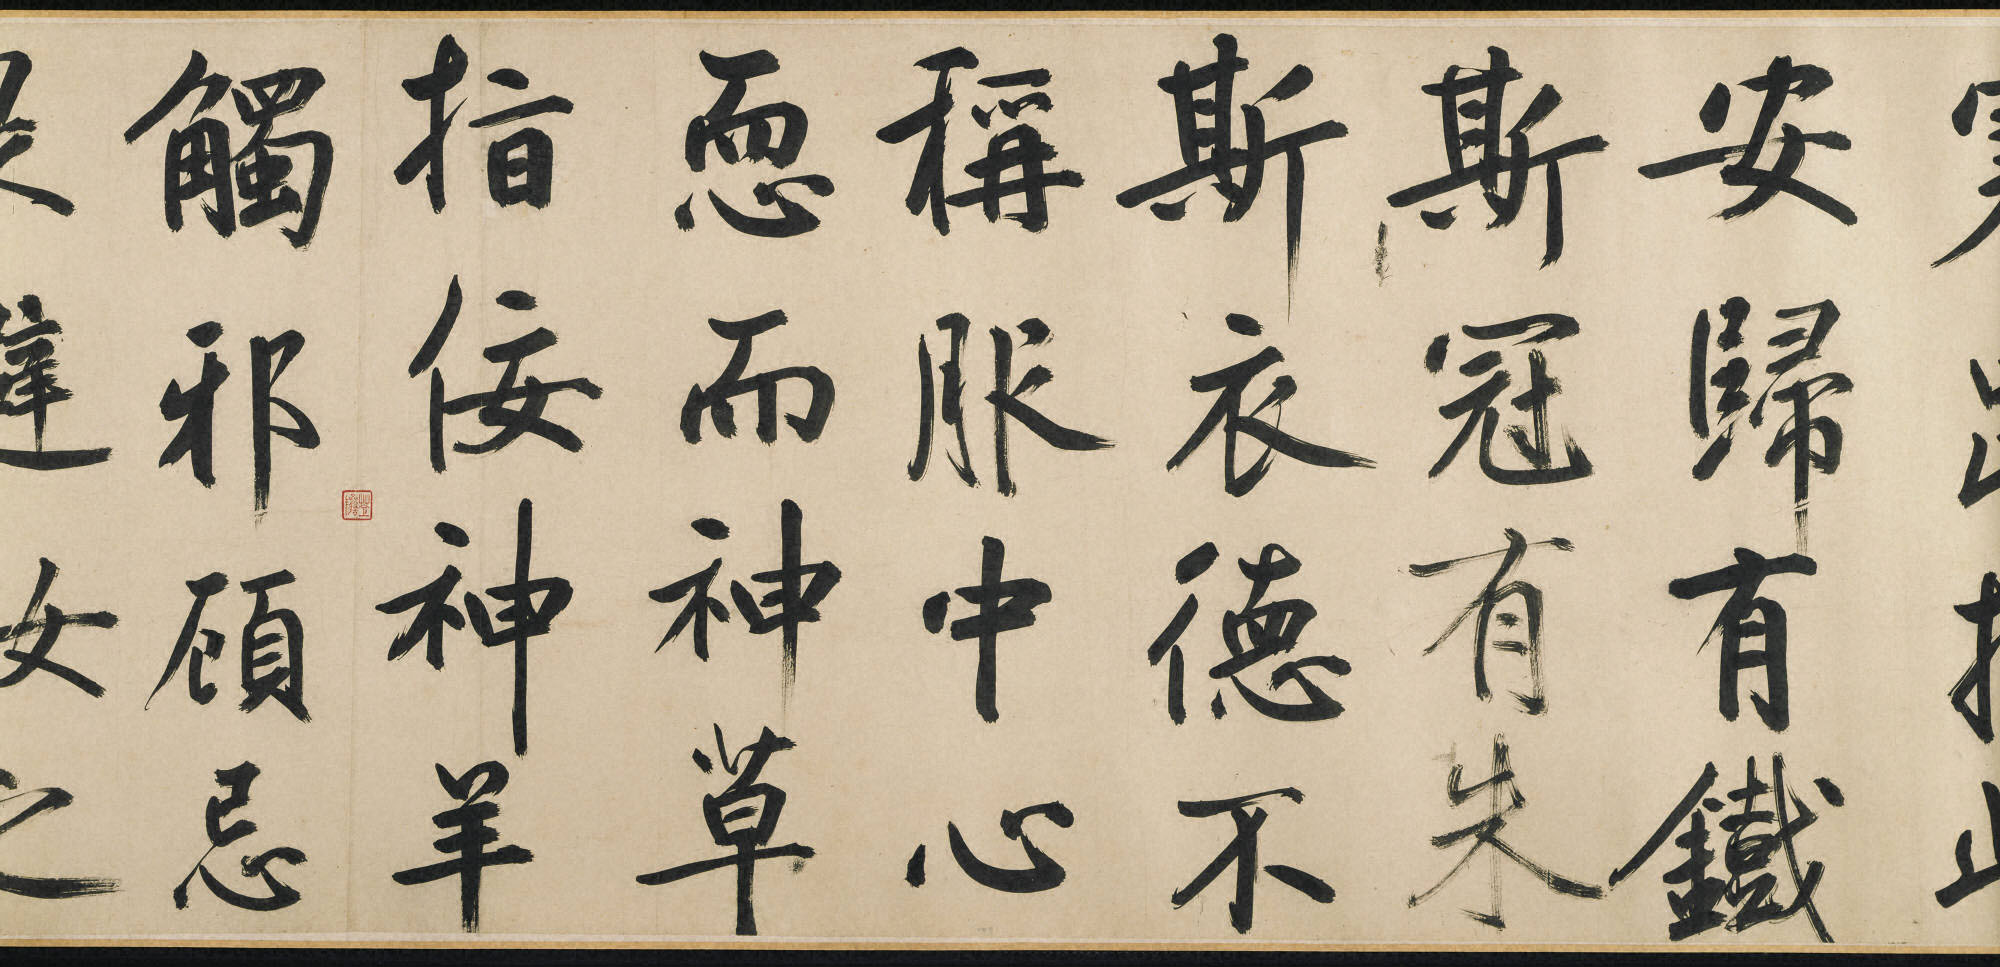 安歸有鐵
斯冠有朱
斯衣德不
稱服中心
恧而神草
指佞神羊
觸邪顧忌
違之